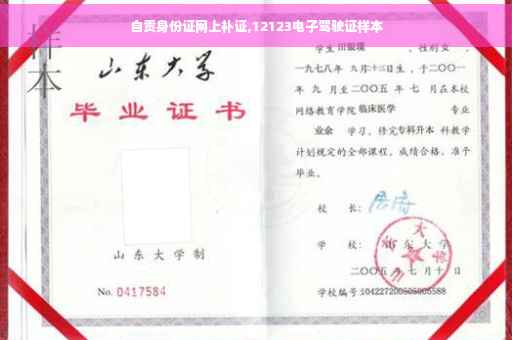 自贡身份证网上补证,12123电子驾驶证样本
样本
山东大学
毕业证书
山东大学制
No. 0417584
学生 ，性别女，
一九七八年 九月十三日生，于二〇〇一
年 九 月至二〇〇五 年 七 月在本校
网络教育学院 临床医学 专业
业余 学习，修完专科升本 科教学
计划规定的全部课程，成绩合格，准予
毕业。
校 长：
学 校： 山东大学
二〇〇五年七月十日
学校编号:104227200505005588